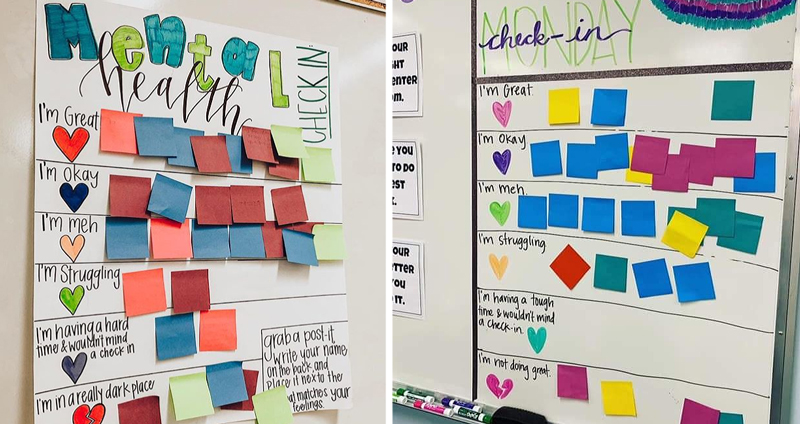 Mental
health
CHECK IN:
I'm Great
I'm Okay
I'm meh
I'm Struggling
I'm having a hard
time & wouldn't mind
a check in
I'm in a really dark place
grab a post-it,
write your name
on the back, and
place it next to the
matches your
feelings.
OUR
GHT
ENTER
OM.
E YOU
TO DO
EST
K.
OUR
ETTER
YOU
IT.
MONDAY
check-in
I'm Great.
I'm Okay
I'm meh.
I'm struggling
I'm having a tough
time & wouldn't mind
a check-in.
I'm not doing great.